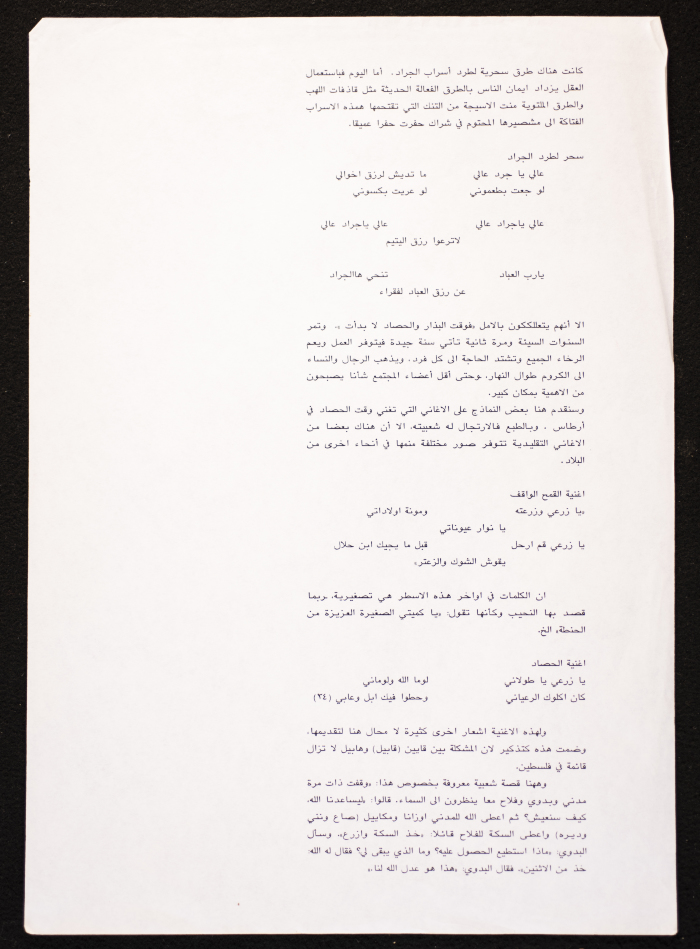 كانت هناك طرق سحرية لطرد أسراب الجراد. أما اليوم فباستعمال
العقل يزداد ايمان الناس بالطرق الفعالة الحديثة مثل قاذفات اللهب
والطرق الملتوية منت الاسيجة من التنك التي تقتحمها همذه الاسراب
الفتاكة الى مشصيرها المحتوم في شراك حفرت حفرا عميقا.
سحر لطرد الجراد
عالي يا جرد عالي ما تديش لرزق اخوالي
لو جعت بطعموني لو عريت بكسوني
عالي ياجراد عالي عالي ياجراد عالي
لاترعوا رزق اليتيم
يارب العباد تنحي هاالجراد
عن رزق العباد لفقراء
الا أنهم يتعلللككون بالامل «فوقت البذار والحصاد لا بدأت ». وتمر
السنوات السيئة ومرة ثانية تأتي سنة جيدة فيتوفر العمل ويعم
الرخاء الجميع وتشتد الحاجة الى كل فرد. ويذهب الرجال والنساء
الى الكروم طوال النهار، وحتى أقل أعضاء المجتمع شأنا يصبحون
من الاهمية بمكان كبير.
وسنقدم هنا بعض النماذج على الاغاني التي تغني وقت الحصاد في
أرطاس . وبالطبع فالارتجال له شعبيته. الا أن هناك بعضا من
الاغاني التقليدية تتوفر صور مختلفة منمها في أنحاء اخرى من
البلاد.
اغنية القمح الواقف
«يا زرعي وزرعته ومونة اولاداتي
يا نوار عيوناتي
يا زرعي قم ارحل قبل ما يجيك ابن حلال
يقوش الشوك والزعتر»
ان الكلمات في اواخر هذه الاسطر هي تصغيرية. ربما
قصد بها النحيب وكأنها تقول: «يا كميتي الصغيرة العزيزة من
الحنطة» الخ.
اغنية الحصاد
يا زرعي يا طولاني لوما الله ولوماني
كان اكلوك الرعياني وحطوا فيك ابل وعابي (٣٤)
ولهذه الاغنية اشعار اخرى كثيرة لا محال هنا لتقديمها.
وضمت هذه كتذكير لان المشكلة بين قايين (قابيل) وهابيل لا تزال
قائمة في فلسطين.
وههنا قصة شعبية معروفة بخصوص هذا: «وقفت ذات مرة
مدني وبدوي وفلاح معا ينظرون الى السماء. قالوا: «ليساعدنا الله،
كيف سنعيش؟ ثم اعطى الله للمدني اوزانا ومكاييل (صاع ونني
وديره) واعطى السكة للفلاح قائلا: «خذ السكة وازرع». وسأل
البدوي: «ماذا استطيع الحصول عليه؟ وما الذي يبقى لي؟ فقال له الله:
خذ من الاثنين». فقال البدوي: «هذا هو عدل الله لنا.»